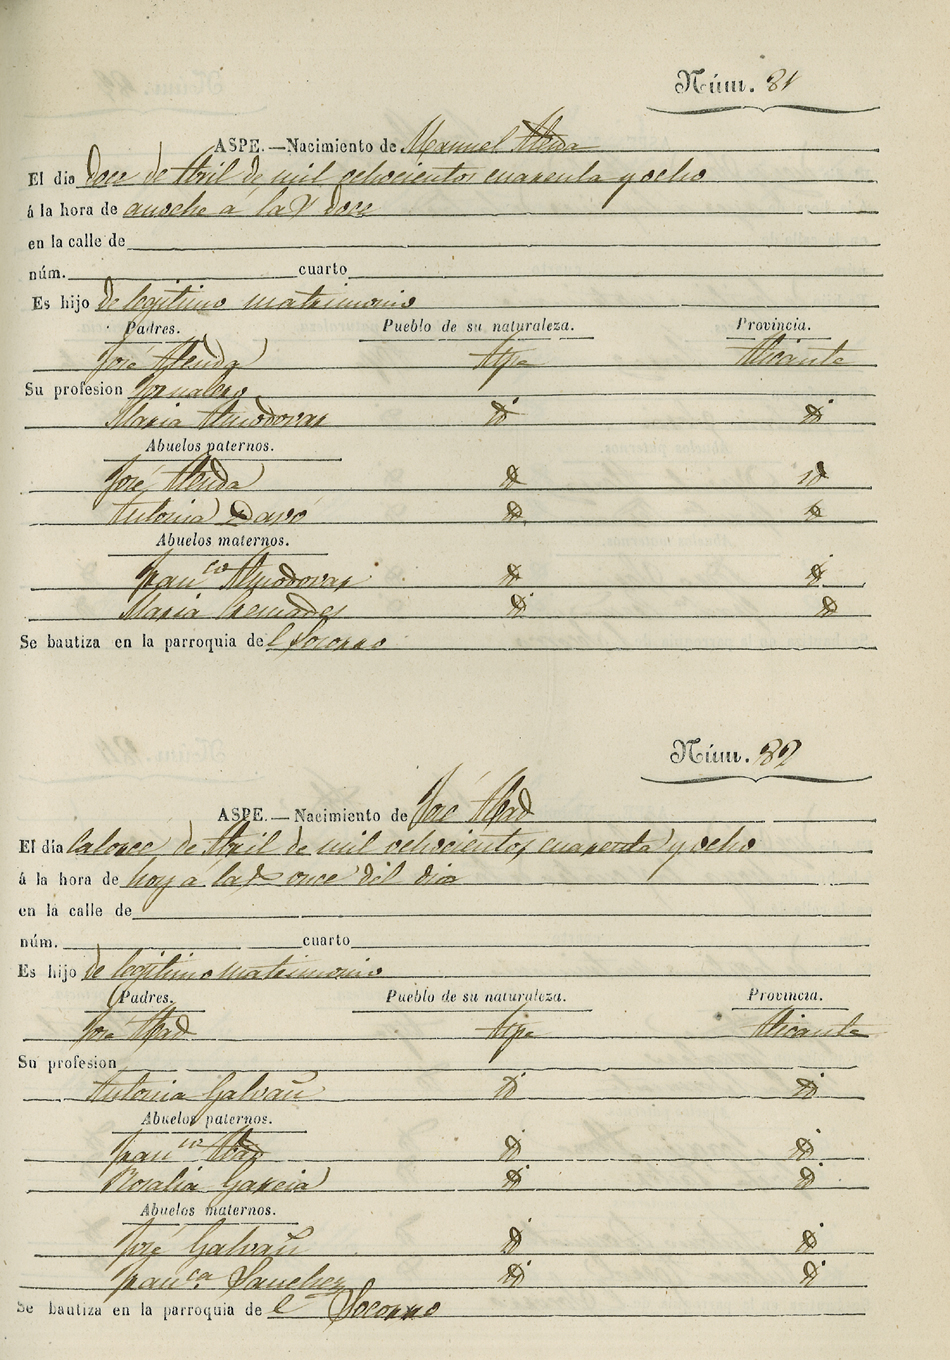 Núm. 81
ASPE.—Nacimiento de Manuel Alenda
El día doce de Abril de mil ochocientos cuarenta y ocho
á la hora de anoche á las doce
en la calle de
núm. cuarto
Es hijo de legitimo matrimonio
Padres. Pueblo de su naturaleza. Provincia.
José Alenda Aspe Alicante
Su profesion Jornalero
Maria Almodovar id id
Abuelos paternos.
José Alenda id id
Antonia Davó id id
Abuelos maternos.
Franco Almodovar id id
Maria id id
Se bautiza en la parroquia de el Socorro
Núm. 82
ASPE.—Nacimiento de José Abad
El día Catorce de Abril de mil ochocientos cuarenta y ocho
á la hora de hoy a las once del dia
en la calle de
núm. cuarto
Es hijo de legitimo matrimonio
Padres. Pueblo de su naturaleza. Provincia.
José Abad Aspe Alicante
Su profesion
Antonia Galvañ id id
Abuelos paternos.
Franco Abad id id
Rosalia Garcia id id
Abuelos maternos.
José Galvañ id id
Franca Sanchez id id
Se bautiza en la parroquia de el Socorro